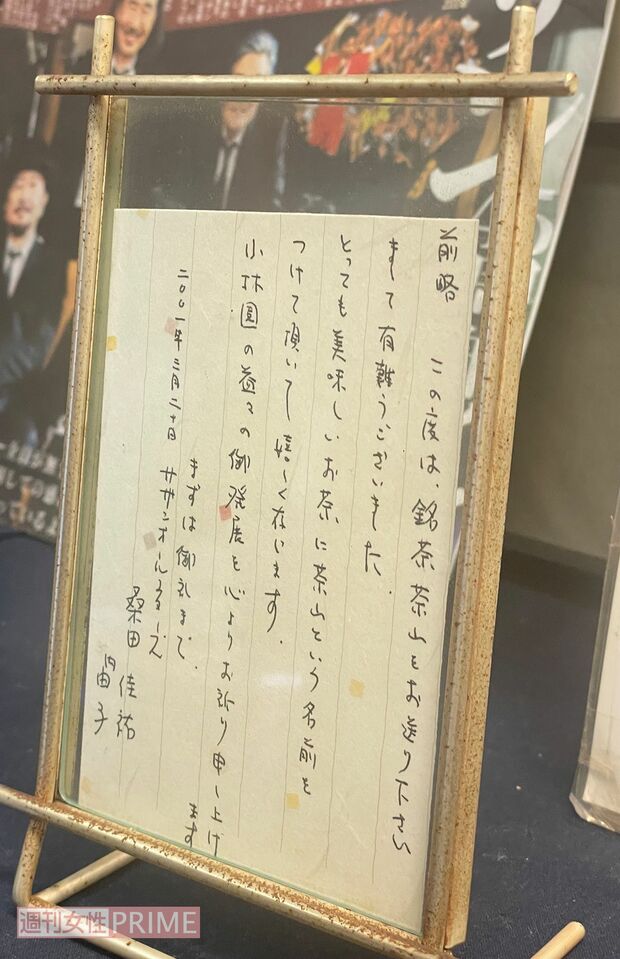 前略　この度は、銘茶茶山をお送り下さい
まして有難うございました。
とっても美味しいお茶に茶山という名前を
つけて頂いて嬉しく存じます。
小林園の益々の御発展を心よりお祈り申し上げ
ます
まずは御礼まで、
二〇〇一年二月二十日 サザンオールスターズ
桑田 佳祐
内 由子
週刊女性PRIME